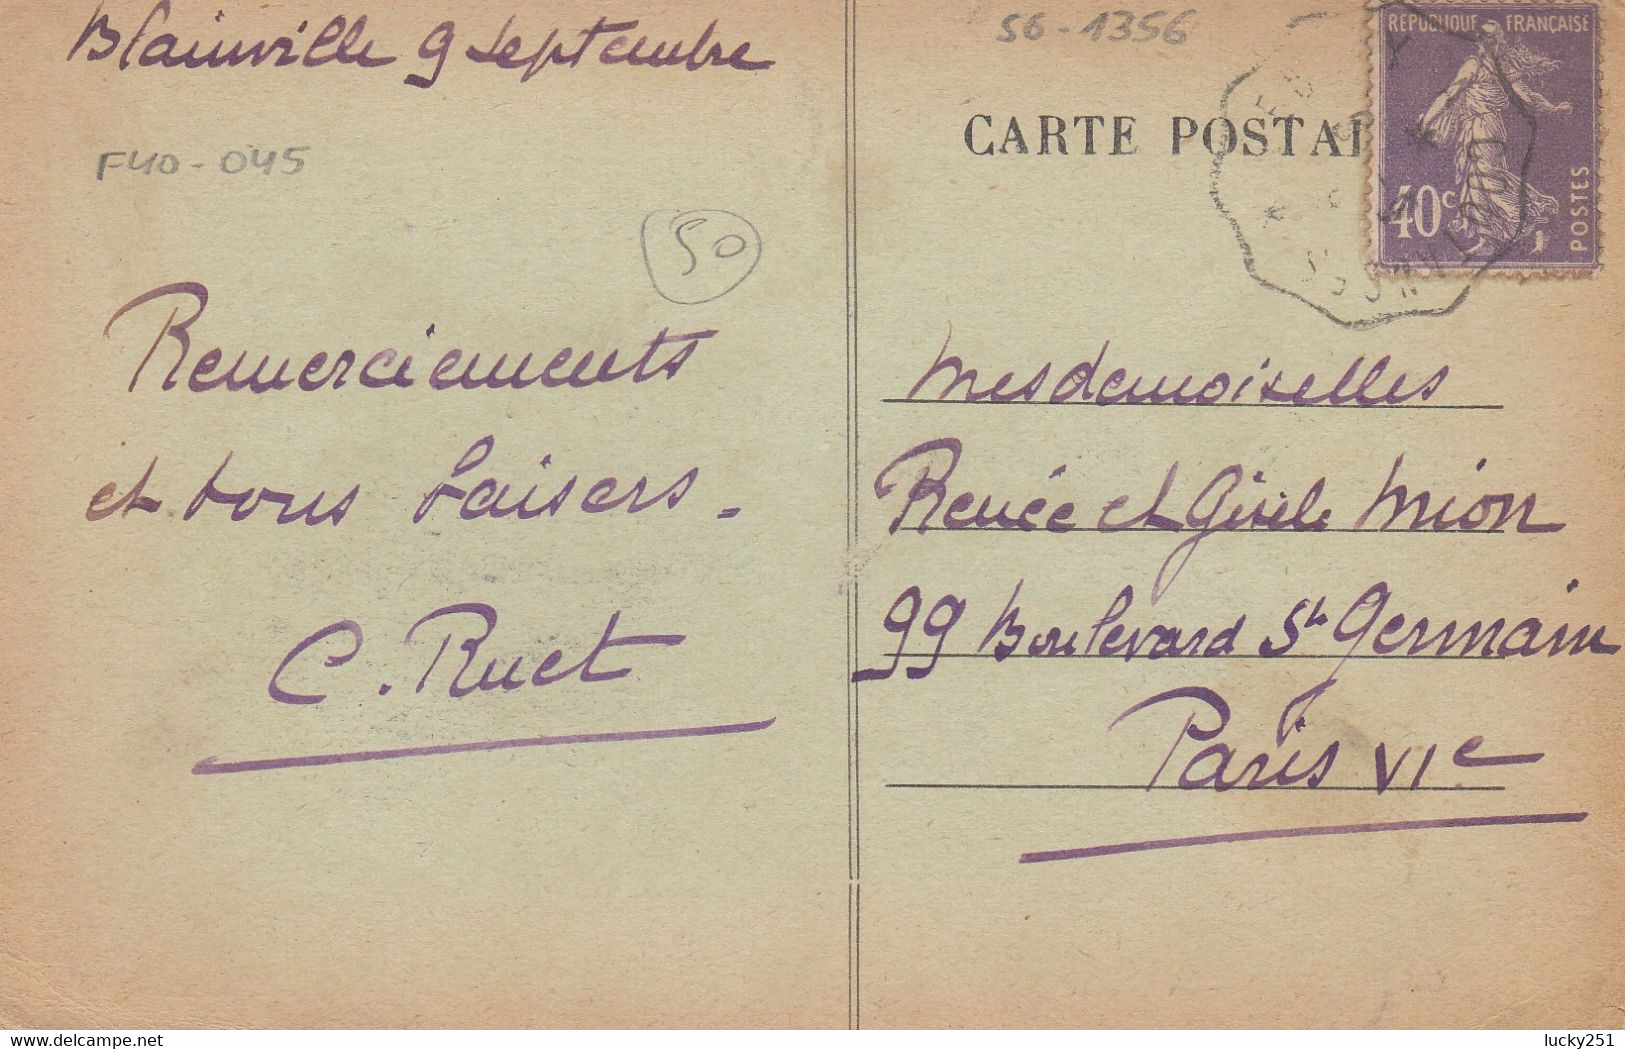 Blainville 9 Septembre
F40-045
50
Remerciements
et bons baisers.
C. Ruet
56-1356
CARTE POSTAL
REPUBLIQUE FRANÇAISE
40c
POSTES
Mesdemoiselles
Renée et Gisèle Mion
99 Boulevard St Germain
Paris VIe
delcampe.net
lucky251